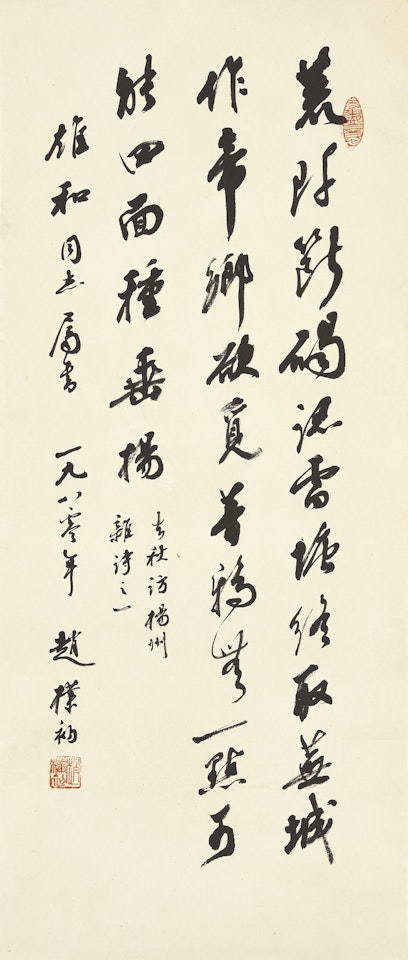 荒阡斷碣認雷塘終取蕪城
作帝鄉欲覓昏鴉無一點可
能四面種垂楊
去秋訪揚州
雜詩之一
雄和同志屬書 一九八零年 趙樸初